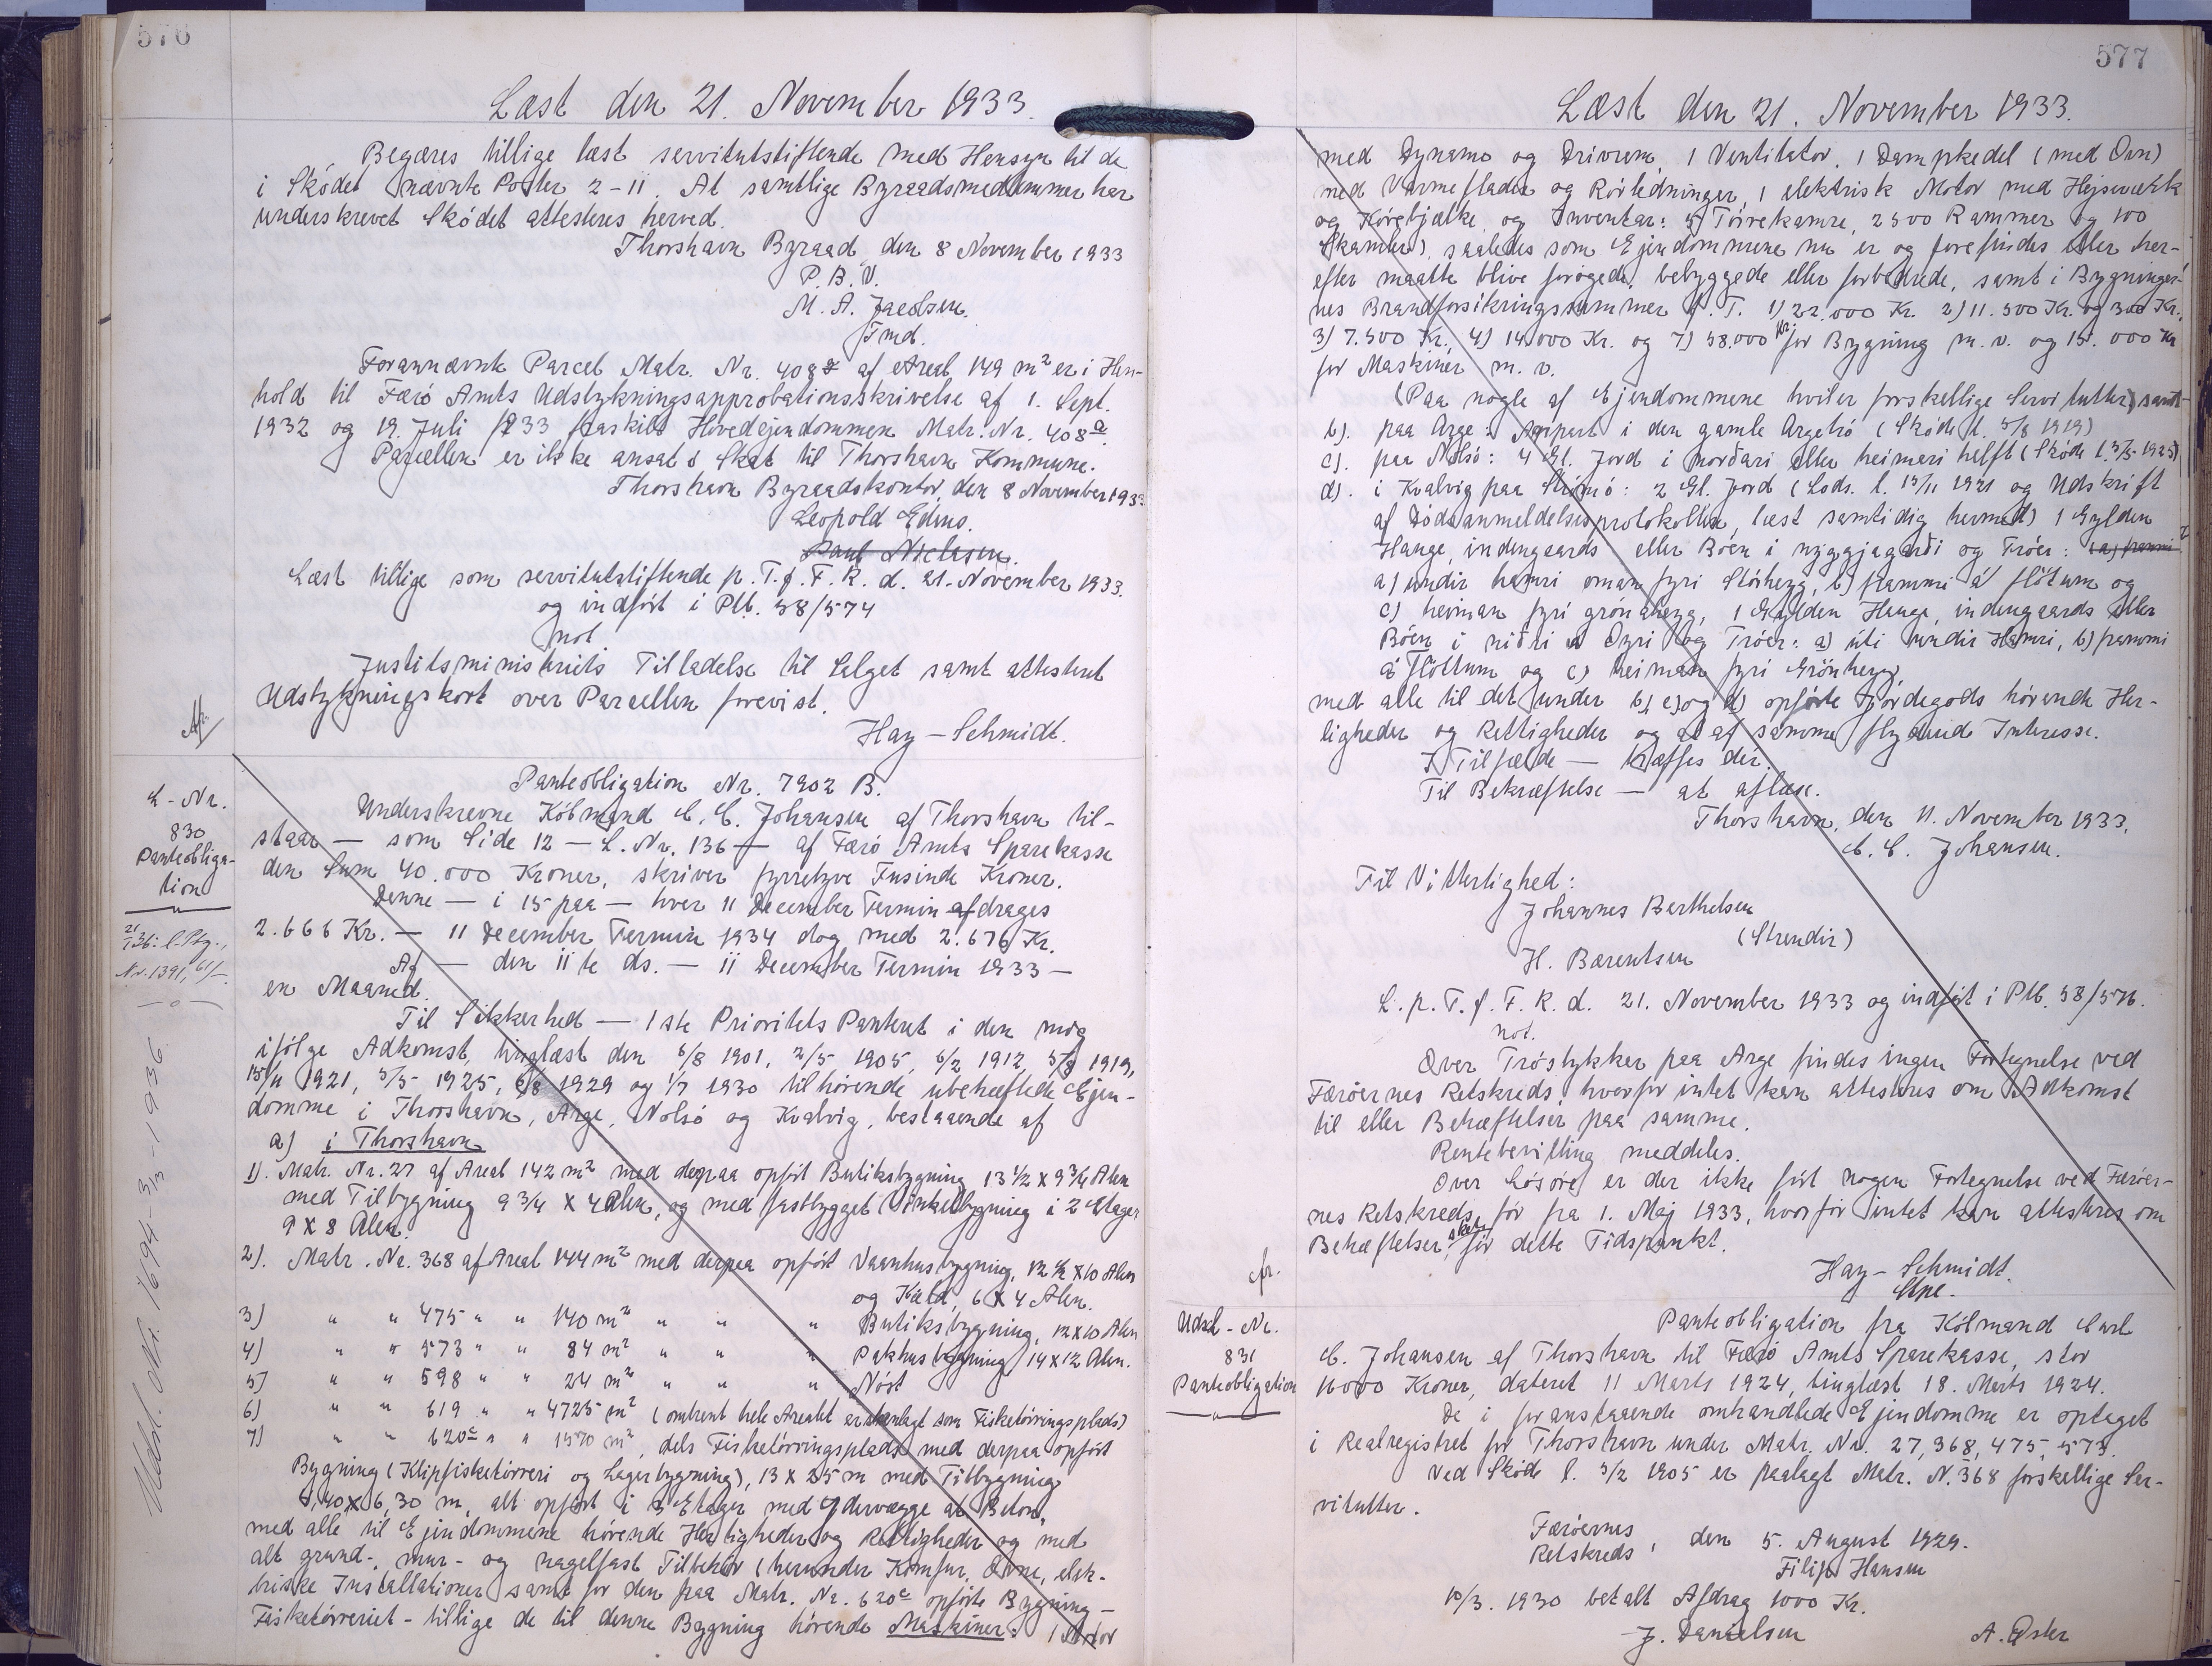 576
Læst den 21. November 1933.
Begæres tillige læst servitutstiftende med Hensyn til de
i Sködet nævnte Poster 2-11. At samtlige Byraadsmedlemmer har
underskrevet Skódet attesteres herved.
Thorshavn Byraad, den 8 November 1933
P. B. V.
M. A. Jacobsen.
Fmd.
Forannævnte Parcel Matr. Nr. 408 af Areal 149 m² er i Hen-
hold til Færö Amts Udstykningsapprobationsskrivelse af 1. Sept.
1932 og 19. Juli 1933 fraskilt Hovedejendommen Matr. Nr. 408a.
Parcellen er ikke ansat i Skat til Thorshavn Kommune.
Thorshavn Byraadskontor, den 8 November 1933
Leopold Edins.
Paul Niclasen.
Læst tillige som servitutstiftende p. T. f. F. R. d. 21. November 1933.
og indfört i Ptb. 38/574
not
Justitsministeriets Tilladelse til Salget samt attesteret
Udstykningskort over Parcellen forevist.
Hay-Schmidt.
L-Nr.
830
Panteobliga-
tion
Nr. 1391,
Udsl. Nr. 1694-3/3-1936
Panteobligation Nr. 7902 B.
Underskrevne Kóbmand C. C. Johansen af Thorshavn til-
staar — som Side 12 — L. Nr. 136 — af Færó Amts Sparekasse
den Sum 40.000 Kroner, skriver fyrretyve Tusinde Kroner.
Denne — i 15 paa — hver 11 December Termin afdrages
2.666 Kr. — 11 December Termin 1934 dog med 2.676 Kr.
Af — den 11te ds. — 11 December Termin 1933 —
en Maaned.
Til Sikkerhed — 1ste Prioritets Panteret i den mig
ifólge Adkomst, tinglæst den 6/8 1901, 2/5 1905, 6/2 1912, 5/8 1919,
15/11 1921, 5/5 1925, 6/8 1929 og 1/7 1930 tilhörende ubehæftede Ejen-
domme i Thorshavn, Arge, Nolsó og Kvalvig, bestaaende af
a) i Thorshavn
1). Matr. Nr. 27 af Areal 142 m² med derpaa opfört Butiksbygning 13 1/2 x 9 3/4 Alen
med Tilbygning 9 3/4 x 4 Alen, og med fastbygget Vinkelbygning i 2 Etager
9 x 8 Alen.
2). Matr. Nr. 368 af Areal 144 m² med derpaa opfört Vaanhusbygning, 12 1/2 x 10 Alen
og Kæld, 6 x 4 Alen.
3) " " 475 " " 140 m² " " " Butiksbygning, 12 x 10 Alen
4) " " 573 " " 84 m² " " " Pakhusbygning 14 x 12 Alen.
5) " " 598 " " 24 m² " " " Nóst
6) " " 619 " " 4725 m² (omtrent hele Arealet er anlagt som Fisketörringsplads)
7) " " 620c " " 1570 m², dels Fisketörringsplads med derpaa opfört
Bygning (Klipfisketörreri og Lagerbygning), 13 x 25 m med Tilbygning
5,40 x 6,30 m, alt opfört i 3 Etager med Ydervægge af Beton,
med alle til Ejendommene hörende Herligheder og Rettigheder og med
alt grund-, mur- og nagelfast Tilbehör (herunder Komfur, Ovne, elek-
triske Installationer samt for den paa Matr. Nr. 620c opförte Bygning —
Fisketörreriet — tillige de til denne Bygning hörende Maskiner: 1 Motor
577
Læst den 21. November 1933.
med Dynamo og Drivrem, 1 Ventilator, 1 Dampkedel (med Ovn)
med Varmeflader og Rörledninger, 1 elektrisk Motor med Hejseværk
og Körebjælke, og Inventar: 5 Törrekamre, 2500 Rammer og 100
Skamler), saaledes som Ejendommene nu er og forefindes eller her-
efter maatte blive forögede, bebyggede eller forbedrede, samt i Bygninger-
nes Brandforsikringssummer p. T. 1) 22.000 Kr. 2) 11.500 Kr. og 300 Kr.,
3) 7.500 Kr. 4) 14.000 Kr. og 7) 58.000 Kr. for Bygning m. v. og 15.000 Kr
for Maskiner m. v.
(Paa nogle af Ejendommene hviler forskellige Servitutter) samt
b). paa Arge: Anpart i den gamle Argetró (Skóde l. 5/8 1919)
c). paa Nólsó: 4 Gl. Jord i norðari eller heimari helft (Skóde l. 5/5 1925)
d). i Kvalvig paa Strómó: 2 Gl. Jord (Lods. l. 15/11 1921 og Udskrift
af Dódsanmeldelsesprotokollen, læst samtidig hermed) 1 Gylden
Hauge, indengaards eller Bóen i nyggjagarði og Tróer:
a) undir hamri oman fyri Stórhegg, b) frammi á flötum og
c) heiman fyri grónahegg, 1 Gylden Hauge, indengaards eller
Bóen i niðri á Oyri og Tróer: a) úti undir Hamri, b) frammi
á Flöttum og c) heiman fyri Grónhegg,
med alle til det under b), c) og d) opförte Jordegods hörende Her-
ligheder og Rettigheder og al af samme flydende Interesse.
I Tilfælde — træffes der.
Til Bekræftelse — at aflæse.
Thorshavn, den 11. November 1933,
C. C. Johansen.
Til Vitterlighed:
Johannes Berthelsen
(Strendir)
H. Bærentsen
L. p. T. f. F. R. d. 21. November 1933 og indfört i Ptb. 38/576.
not.
Over Tróstykker paa Arge findes ingen Fortegnelse ved
Færóernes Retskreds, hvorfor intet kan attesteres om Adkomst
til eller Behæftelser paa samme.
Rentebevilling meddeles.
Over Lösöre er der ikke fört nogen Fortegnelse ved Færóer-
nes Retskreds för fra 1. Maj 1933, hvorfor intet kan attesteres om
Behæftelser för dette Tidspunkt.
Hay-Schmidt.
Udsl-Nr.
831
Panteobligation
Panteobligation fra Kóbmand Carl
C. Johansen af Thorshavn til Færó Amts Sparekasse, stor
16000 Kroner, dateret 11 Marts 1924, tinglæst 18. Marts 1924.
De i foranstaaende omhandlede Ejendomme er optaget
i Realregistret for Thorshavn under Matr. Nr. 27, 368, 475, 573.
Ved Skóde l. 3/2 1905 er paalagt Matr. N. 368 forskellige Ser-
vitutter.
Færóernes
Retskreds, den 5. August 1929.
Filip Hansen
10/3. 1930 betalt Afdrag 1000 Kr.
J. Danielsen A. Øster